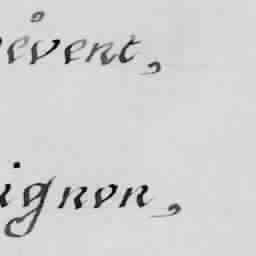 event,
ignon,